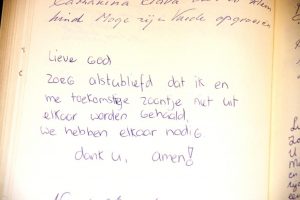 kind Moge zij in Vrede opgroeien
Lieve God
Zorg alstubliefd dat ik en
me toekomstige zoontje niet uit
elkaar worden gehaald.
We hebben elkaar nodig
dank u, amen!